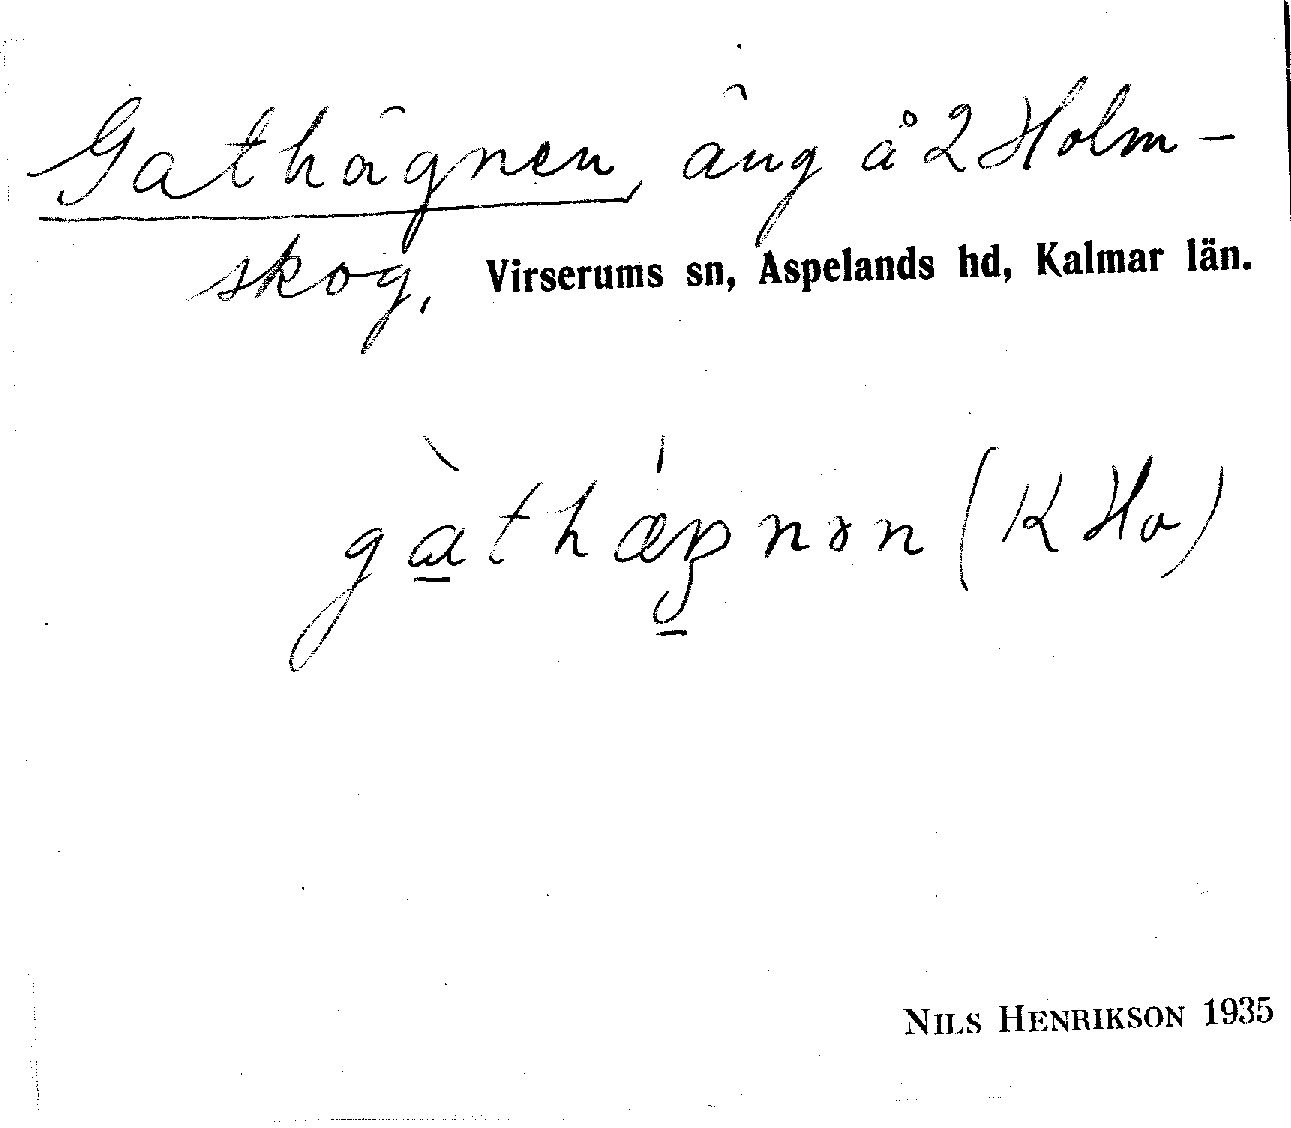 Gathägnen, äng å 2 Holm-
skog, Virserums sn, Aspelands hd, Kalmar län.
gàthæŋnən (K Ho)
NILS HENRIKSON 1935